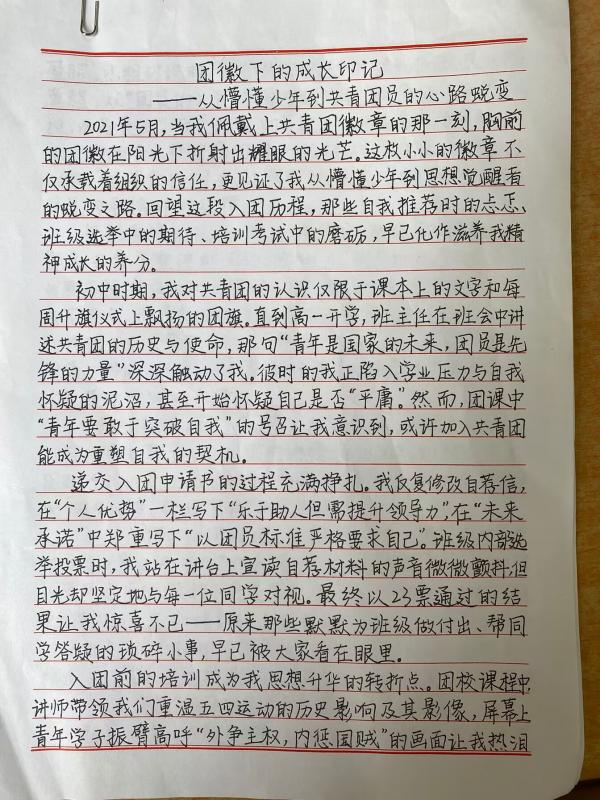 团徽下的成长印记
——从懵懂少年到共青团员的心路蜕变
2021年5月,当我佩戴上共青团徽章的那一刻,胸前
的团徽在阳光下折射出耀眼的光芒。这枚小小的徽章不
仅承载着组织的信任,更见证了我从懵懂少年到思想觉醒者
的蜕变之路。回望这段入团历程,那些自我推荐时的忐忑、
班级选举中的期待、培训考试中的磨砺,早已化作滋养我精
神成长的养分。
初中时期,我对共青团的认识仅限于课本上的文字和每
周升旗仪式上飘扬的团旗。直到高一开学,班主任在班会中讲
述共青团的历史与使命,那句“青年是国家的未来,团员是先
锋的力量”深深触动了我。彼时的我正陷入学业压力与自我
怀疑的泥沼,甚至开始怀疑自己是否“平庸”。然而,团课中
“青年要敢于突破自我”的号召让我意识到,或许加入共青团
能成为重塑自我的契机。
递交入团申请书的过程充满挣扎。我反复修改自荐信,
在“个人优势”一栏写下“乐于助人但需提升领导力”,在“未来
承诺”中郑重写下“以团员标准严格要求自己”。班级内部选
举投票时,我站在讲台上宣读自荐材料的声音微微颤抖,但
目光却坚定地与每一位同学对视。最终以23票通过的结
果让我惊喜不已——原来那些默默为班级做付出、帮同
学答疑的琐碎小事,早已被大家看在眼里。
入团前的培训成为我思想升华的转折点。团校课程中,
讲师带领我们重温五四运动的历史影响及其影像,屏幕上
青年学子振臂高呼“外争主权,内惩国贼”的画面让我热泪